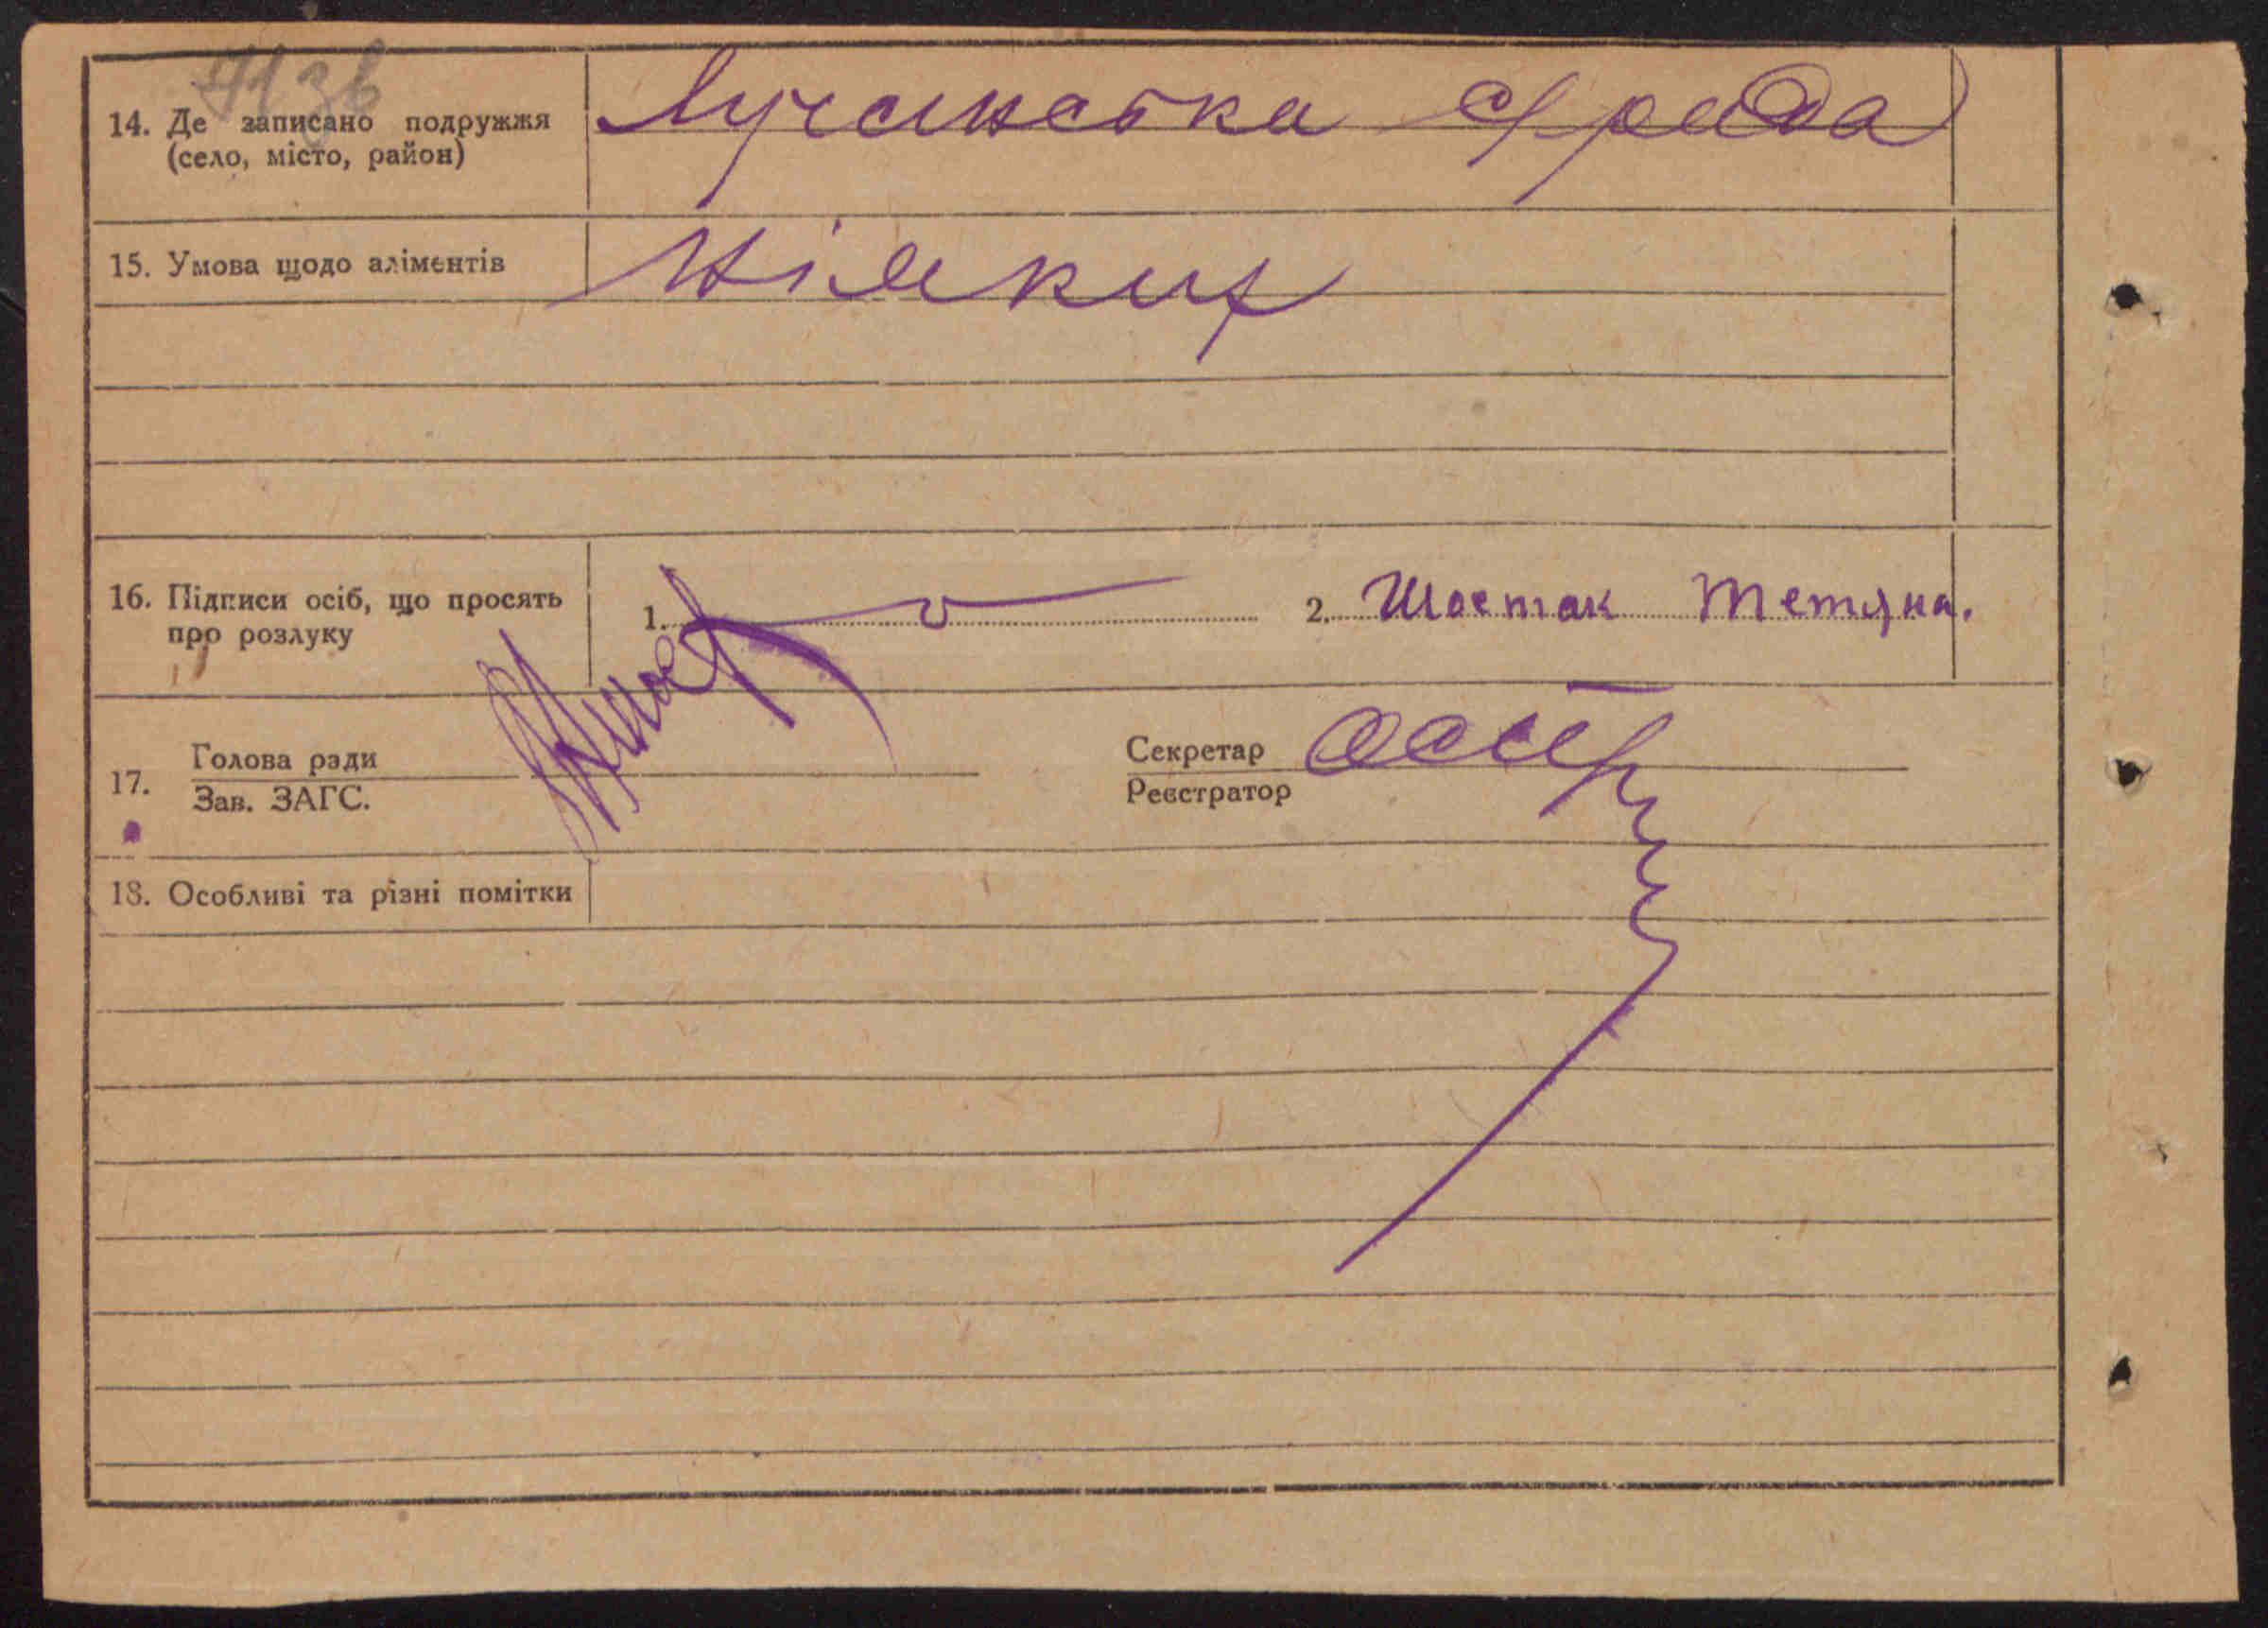 71зв
14. Де записано подружжя
(село, місто, район)
Лучанська с/рада
15. Умова щодо аліментів
Ніяких
16. Підписи осіб, що просять
про розлуку
1.
2. Шостак Тетяна.
17.
Голова ради
Зав. ЗАГС.
Секретар
Реєстратор
18. Особливі та різні помітки